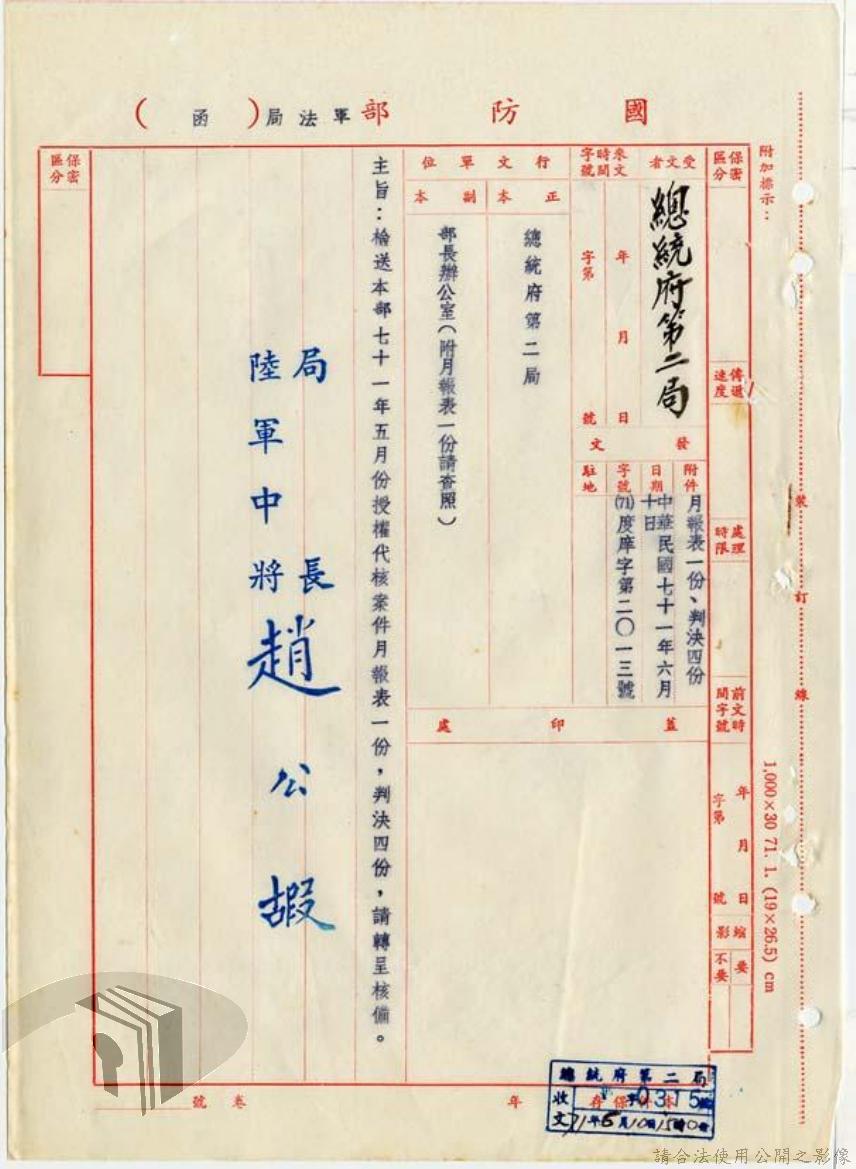 國防部軍法局（函）
附加標示：
裝訂線
1,000×30 71. 1. (19×26.5) cm
保密區分
傳遞速度
處理時限
前文時間字號
年月日
字第號
縮影
要
不要
受文者
總統府第二局
來文時間字號
年月日
字第號
行文單位
正本
總統府第二局
副本
部長辦公室（附月報表一份請查照）
發文
附件
月報表一份、判決四份
日期
中華民國七十一年六月十日
字號
(71)度庠字第二〇一三號
駐地
蓋印處
主旨：檢送本部七十一年五月份授權代核案件月報表一份，判決四份，請轉呈核備。
局長
陸軍中將趙公嘏
保密區分
年
卷號
總統府第二局
收文
0315
71年6月10日15時0分
請合法使用公開之影像